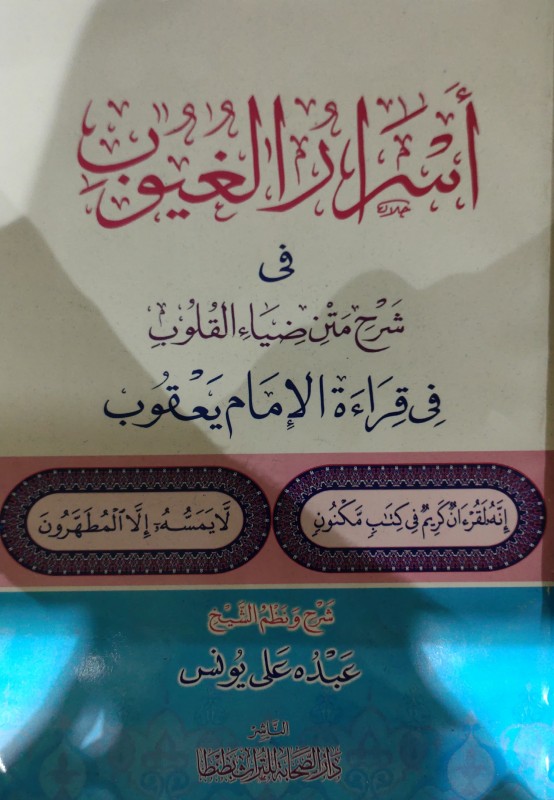 أسرار الغيوب
فى
شَرْحِ مَتْنِ ضِيَاءِ القُلُوبِ
فِى قِرَاءَةِ الإِمَامِ يَعْقُوب
إِنَّهُۥ لَقُرْءَانٌ كَرِيمٌ فِى كِتَٰبٍ مَّكْنُونٍ
لَّا يَمَسُّهُۥٓ إِلَّا ٱلْمُطَهَّرُونَ
شَرْحُ وَنَظْمُ الشَّيْخِ
عَبْدُه عَلى يُونس
النَّاشِرُ
دَارُ الصَّحَابَةِ لِلتُّرَاثِ بِطَنْطَا